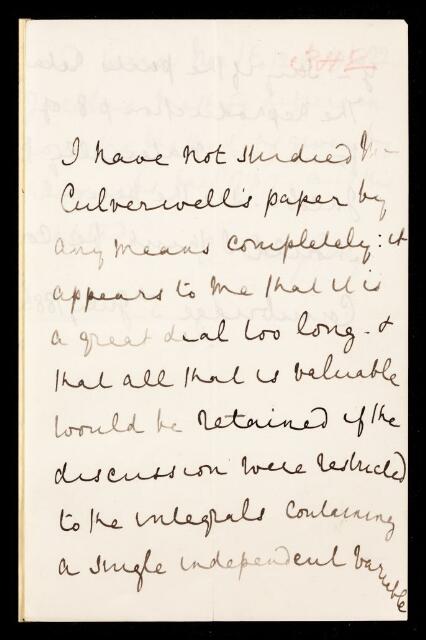 I have not studied Mr
Culverwell's paper by
any means completely: it
appears to me that it is
a great deal too long - &
that all that is valuable
would be retained if the
discussion were restricted
to the integrals containing
a single independent variable